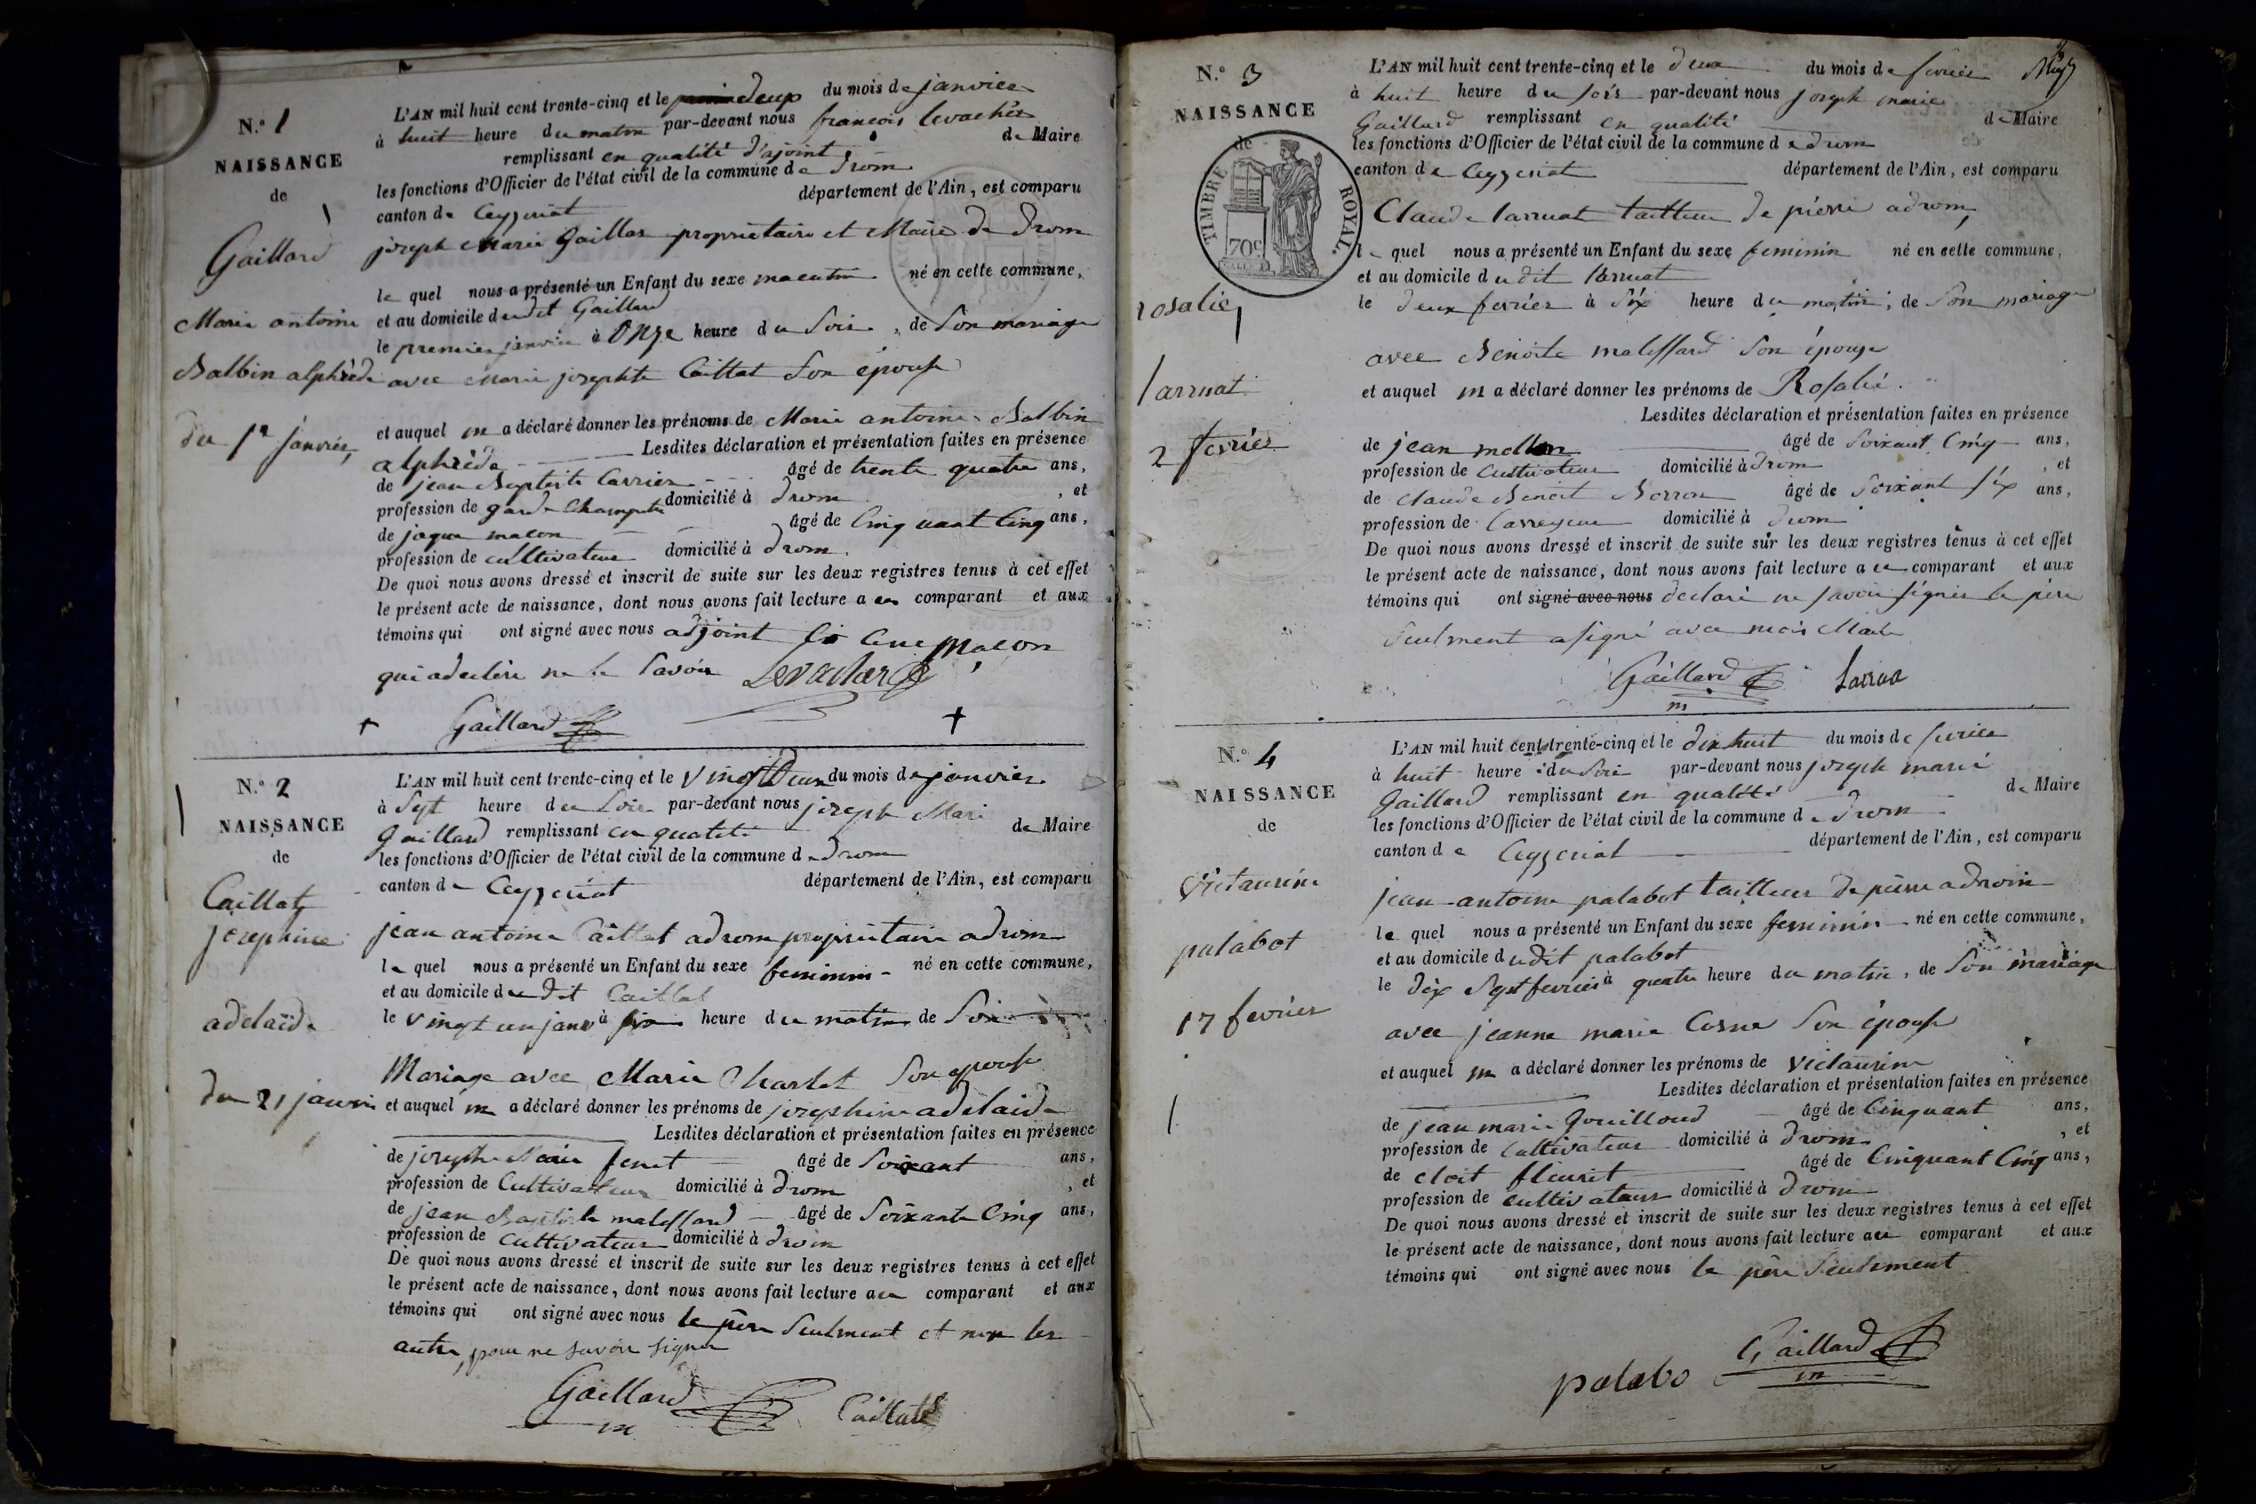 N.º 1
NAISSANCE
de
Gaillard
Marie antoine
Balbin alphrède
du 1er janvier
L'AN mil huit cent trente-cinq et le deux du mois de janvier
à huit heure du matin par-devant nous francois levacher
remplissant en qualité d'ajoint de Maire
les fonctions d'Officier de l'état civil de la commune de drom
canton de Ceyzeriat département de l'Ain, est comparu
joseph Marie Gaillar propriétaire et Maire de Drom
le quel nous a présenté un Enfant du sexe masculin né en cette commune,
et au domicile dudit Gaillard
le premier janvier à Onze heure du Soir, de Son mariage
avec Marie josephte Caillat Son épouse
et auquel il a déclaré donner les prénoms de Marie antoine Balbin
alphrède Lesdites déclaration et présentation faites en présence
de jean Baptiste Carrier âgé de trente quatre ans,
profession de garde Champetre domicilié à drom, et
de jaque macon âgé de Cinquant Cinq ans,
profession de cultivateur domicilié à drom.
De quoi nous avons dressé et inscrit de suite sur les deux registres tenus à cet effet
le présent acte de naissance, dont nous avons fait lecture a comparant et aux
témoins qui ont signé avec nous adjoint macon
qui a declére ne le Savoir Levacher
Gaillard
N.º 2
NAISSANCE
de
Caillat
josephine
adelaïde
du 21 janvier
L'AN mil huit cent trente-cinq et le vingt Deux du mois de janvier
à Sept heure du Soir par-devant nous joseph Mari
Gaillard remplissant en qualité de Maire
les fonctions d'Officier de l'état civil de la commune de drom
canton de Ceyzeriat département de l'Ain, est comparu
jean antoine Caillat a drom propriétaire a drom
le quel nous a présenté un Enfant du sexe feminin né en cette commune,
et au domicile dudit Caillat
le vingt un janv à six heure du matin de Son
Mariage avec Marie Charlet Son epouse
et auquel il a déclaré donner les prénoms de josephine adelaide
Lesdites déclaration et présentation faites en présence
de joseph Marie fenet âgé de Soixant ans,
profession de Cultivateur domicilié à Drom, et
de jean Baptiste maleffard âgé de Soixante Cinq ans,
profession de Cultivateur domicilié à drom
De quoi nous avons dressé et inscrit de suite sur les deux registres tenus à cet effet
le présent acte de naissance, dont nous avons fait lecture au comparant et aux
témoins qui ont signé avec nous le père Seulment et non les
autre, pour ne savoir signer
Gaillard Caillat
N.º 3
NAISSANCE
de
TIMBRE ROYAL
70c
rosalie
larruat
2 fevrier
L'AN mil huit cent trente-cinq et le deux du mois de fevrier
à huit heure du soir par-devant nous joseph marie
Gaillard remplissant en qualité de Maire
les fonctions d'Officier de l'état civil de la commune de drom
canton de Ceyzeriat département de l'Ain, est comparu
Claude larruat tailleur de pierre a drom,
le quel nous a présenté un Enfant du sexe feminin né en cette commune,
et au domicile dudit larruat
le deux fevrier à Six heure du matin, de Son mariage
avec Benoite maleffard Son épouse
et auquel il a déclaré donner les prénoms de Rosalie.
Lesdites déclaration et présentation faites en présence
de jean âgé de Soixant Cinq ans,
profession de Cultivateur domicilié à drom, et
de Claude Benoit Borron âgé de Soixant six ans,
profession de domicilié à drom
De quoi nous avons dressé et inscrit de suite sur les deux registres tenus à cet effet
le présent acte de naissance, dont nous avons fait lecture a ce comparant et aux
témoins qui ont signé avec nous declaré ne savoir signer le père
Seulment a signé avec nous Maire
Gaillard larrua
N.º 4
NAISSANCE
de
Victaurine
palabot
17 fevrier
L'AN mil huit cent trente-cinq et le dix huit du mois de fevrier
à huit heure du Soir par-devant nous joseph marie
Gaillard remplissant en qualité de Maire
les fonctions d'Officier de l'état civil de la commune de drom
canton de Ceyzeriat département de l'Ain, est comparu
jean antoine palabot tailleur de pierre a drom
le quel nous a présenté un Enfant du sexe feminin né en cette commune,
et au domicile dudit palabot
le dix Sept fevrier à quatre heure du matin, de Son mariage
avec jeanne marie Corne Son épouse
et auquel il a déclaré donner les prénoms de Victaurine
Lesdites déclaration et présentation faites en présence
de jean marie Gouilloud âgé de Cinquant ans,
profession de Cultivateur domicilié à drom, et
de cloit fleurit âgé de Cinquant Cinq ans,
profession de cultivateur domicilié à drom
De quoi nous avons dressé et inscrit de suite sur les deux registres tenus à cet effet
le présent acte de naissance, dont nous avons fait lecture au comparant et aux
témoins qui ont signé avec nous le père Seulement
palabo Gaillard